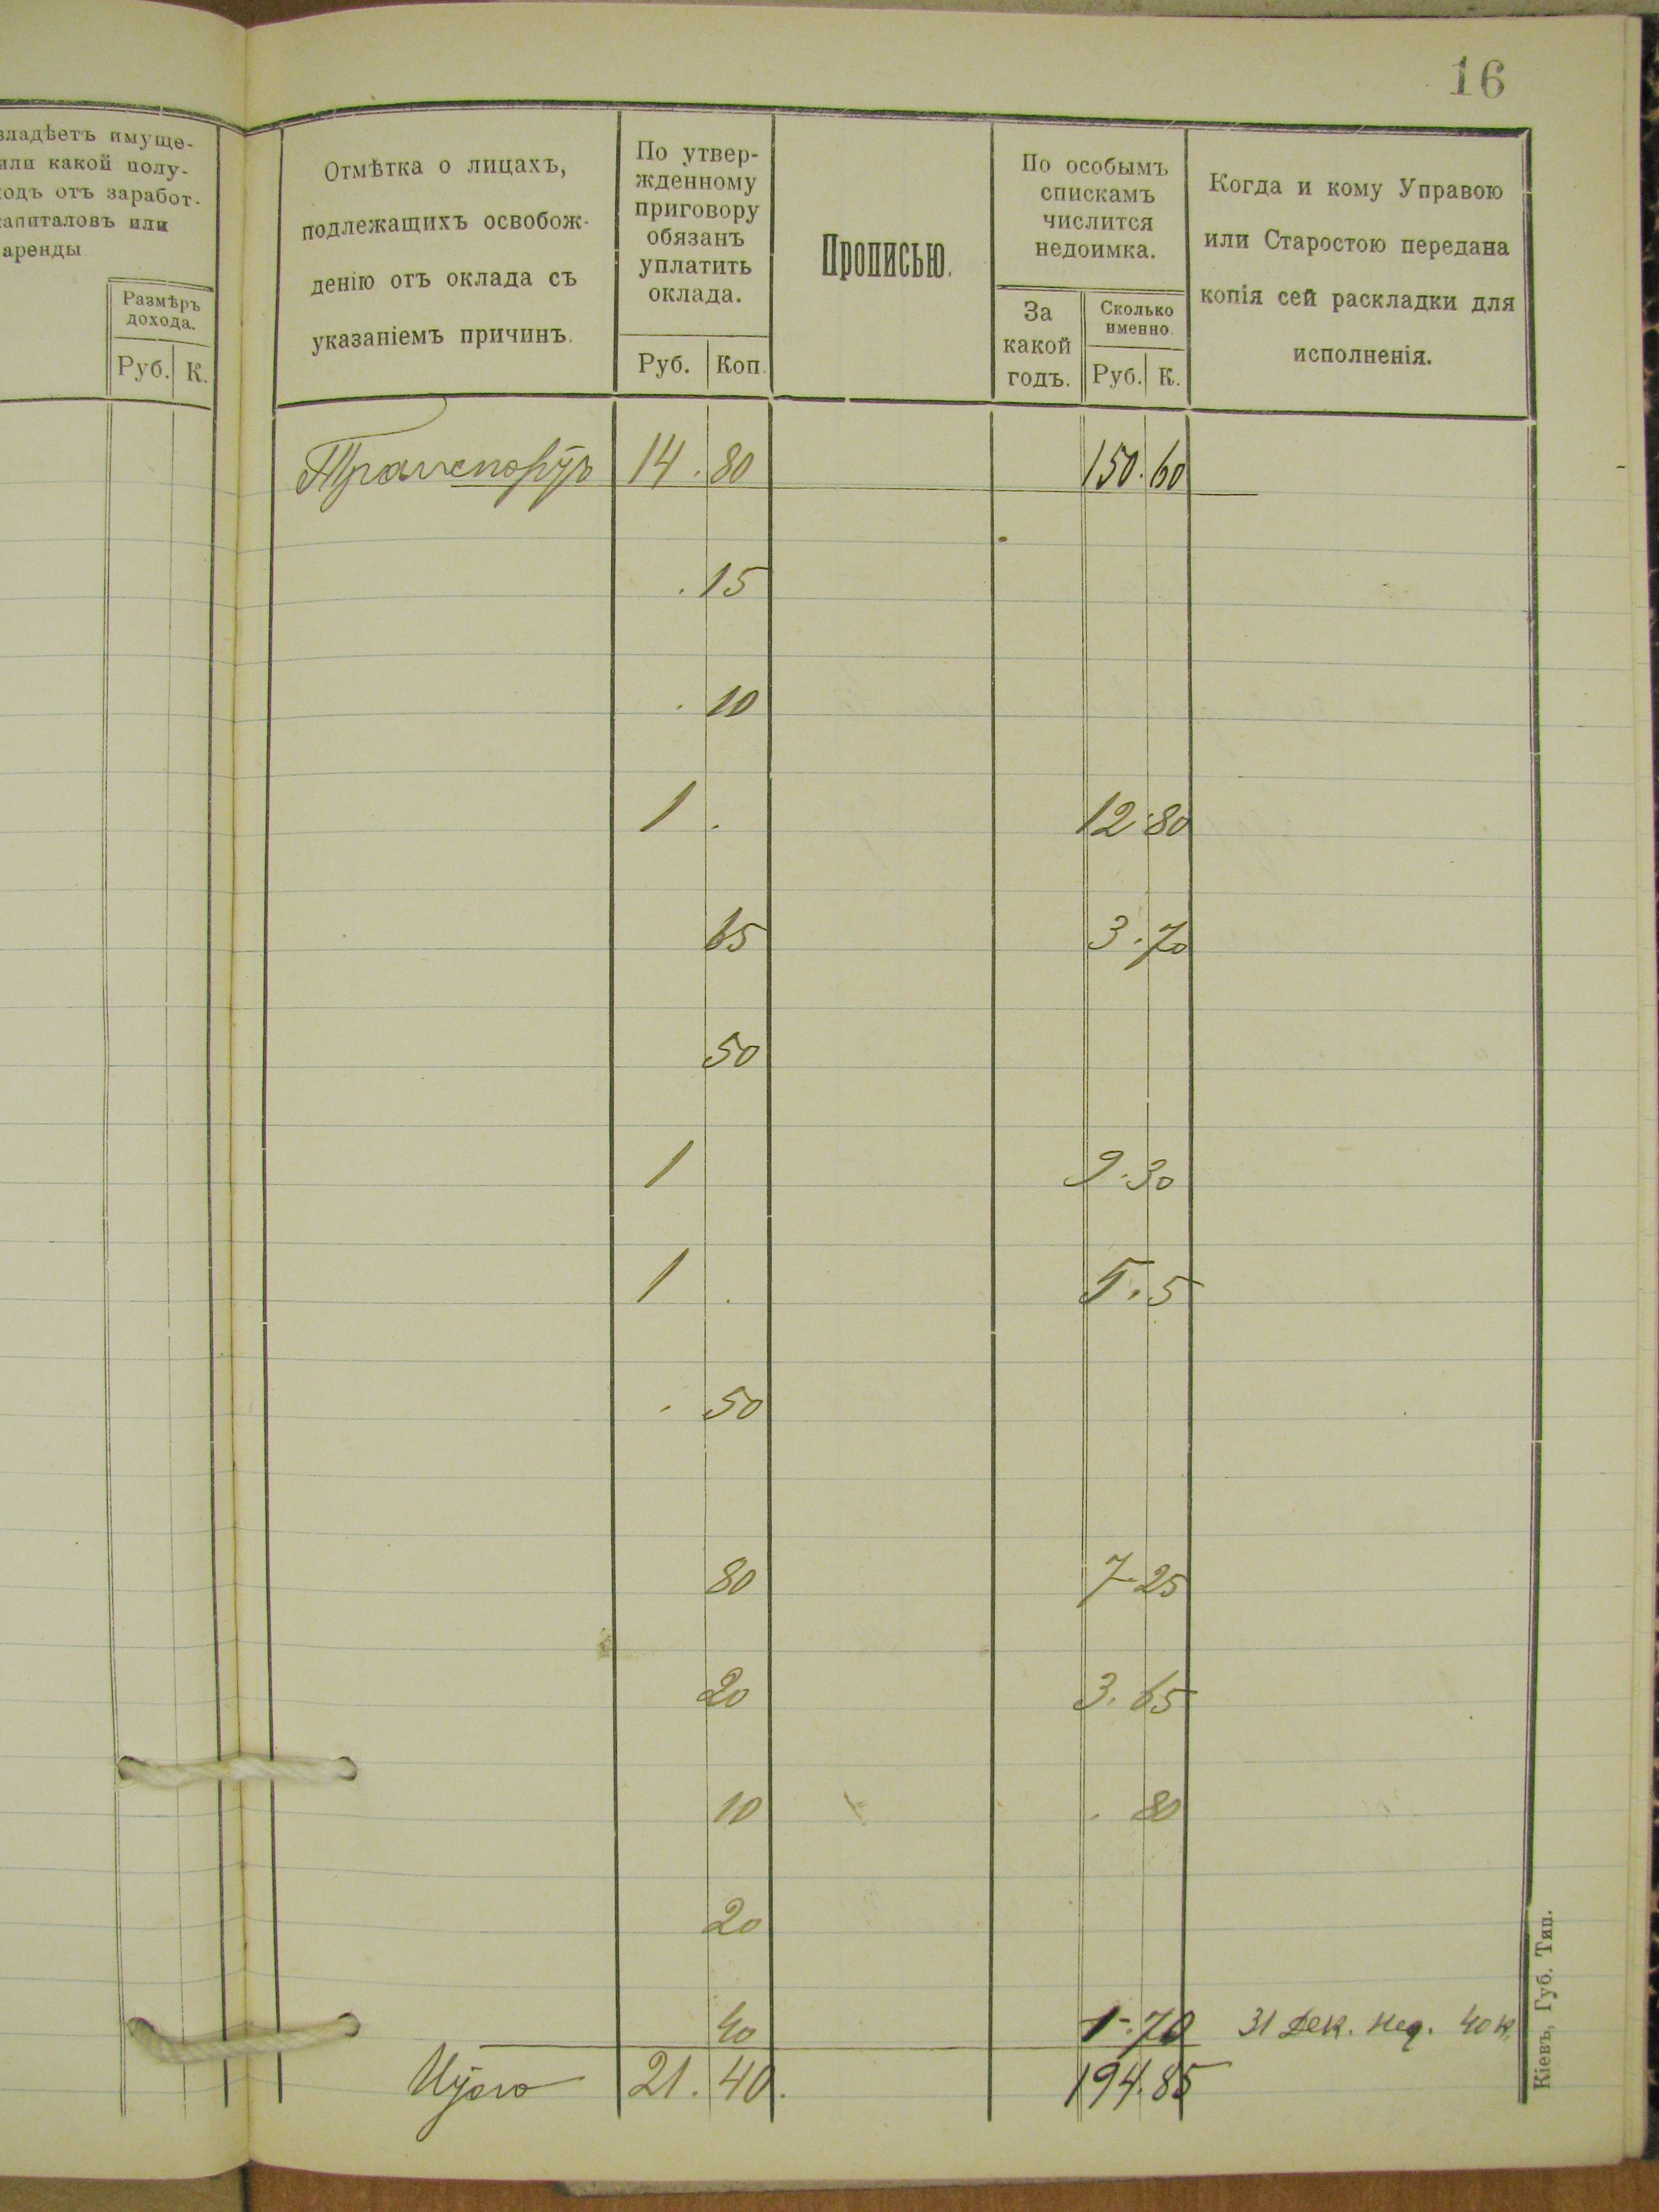 16
владѣетъ имуще-
или какой полу-
ходъ отъ заработ.
капиталовъ или
аренды
Размѣръ
дохода.
Руб. К.
Отмѣтка о лицахъ,
подлежащихъ освобож-
денію отъ оклада съ
указаніемъ причинъ.
По утвер-
жденному
приговору
обязанъ
уплатить
оклада.
Руб. Коп.
Прописью.
По особымъ
спискамъ
числится
недоимка.
За
какой
годъ.
Сколько
именно.
Руб. К.
Когда и кому Управою
или Старостою передана
копія сей раскладки для
исполненія.
Транспортъ 14.80 150.60
.15
.10
1 . 12.80
65 3.70
50
1 9.30
1 . 5.5
. 50
80 7.25
20 3.65
10 . 80
20
40 1.70 31 Дек. Нед. 40 к.
Итого 21.40. 194.85
Кіевъ, Губ. Тип.